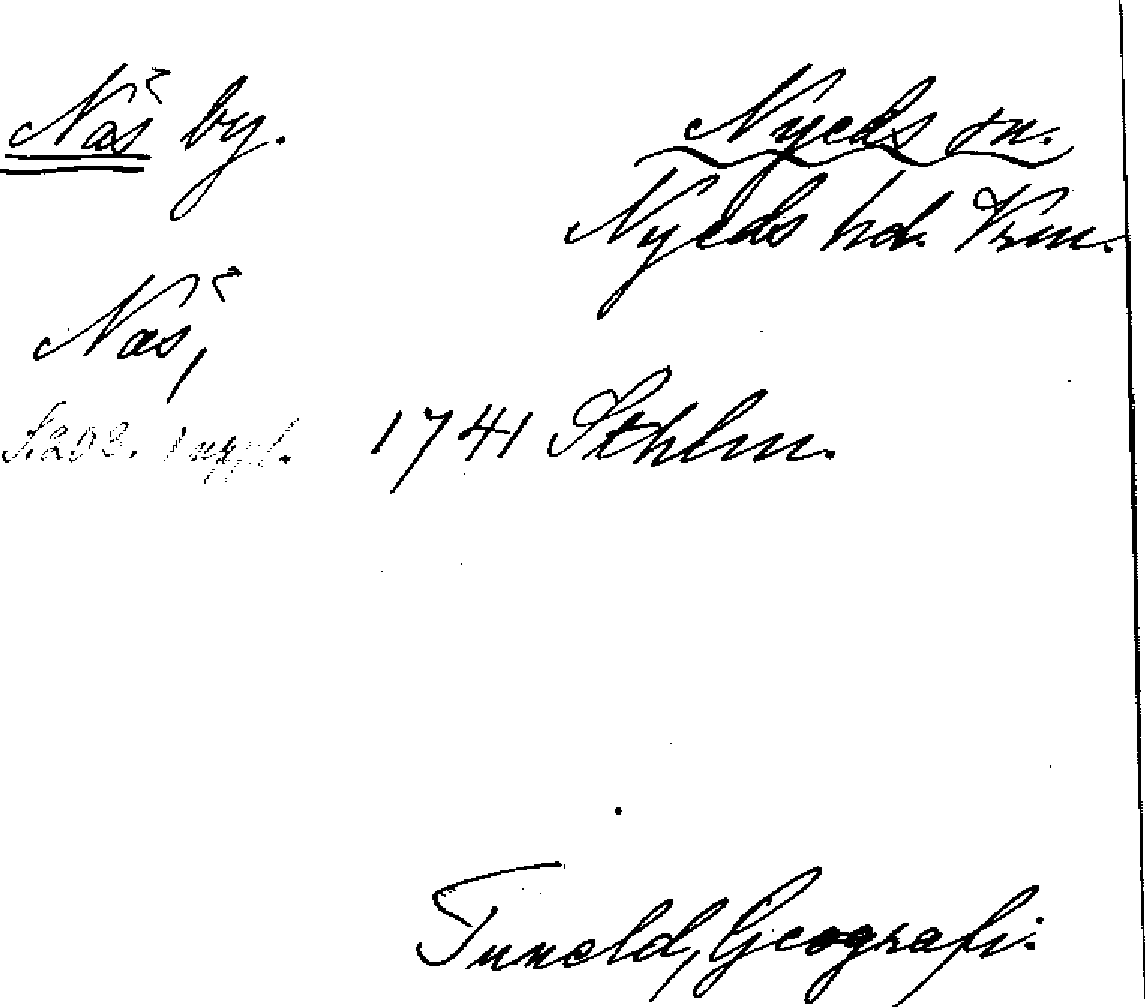 Näs by.
Nyeds sn.
Nyeds hd. Vrm.
Näs,
S. 202. suppl. 1741 Sthlm.
Tuneld, Geografi.